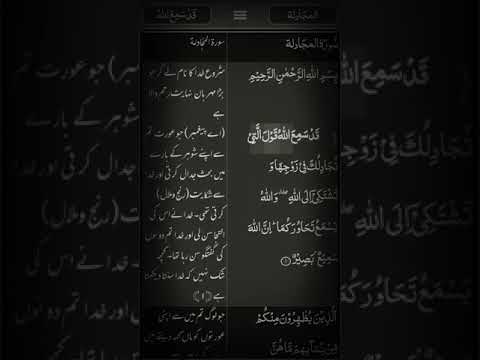 المجادلة
قَدْ سَمِعَ اللهُ
سُوْرَةُ الْمُجَادِلَة
سورة المجادلة
بِسْمِ اللهِ الرَّحْمٰنِ الرَّحِيْمِ
قَدْ سَمِعَ اللّٰهُ قَوْلَ الَّتِیْ
تُجَادِلُكَ فِیْ زَوْجِهَا وَ
تَشْتَكِیْۤ اِلَی اللّٰهِ ۖۗ وَاللّٰهُ
یَسْمَعُ تَحَاوُرَكُمَا ؕ اِنَّ اللّٰهَ
سَمِیْعٌۢ بَصِیْرٌ ۝۱
اَلَّذِیْنَ یُظٰهِرُوْنَ مِنْكُمْ
مِّنْ نِّسَآىِٕهِمْ مَّا هُنَّ
شروع خدا کا نام لے کر جو
بڑا مہربان نہایت رحم والا
ہے
(اے پیغمبر) جو عورت تم
سے اپنے شوہر کے بارے
میں بحث جدال کرتی اور خدا
سے شکایت (رنج وملال)
کرتی تھی۔ خدا نے اس کی
التجا سن لی اور خدا تم دونوں
کی گفتگو سن رہا تھا۔ کچھ
شک نہیں کہ خدا سنتا دیکھتا
ہے ﴿۱﴾
جو لوگ تم میں سے اپنی
عورتوں کو ماں کہہ دیتے ہیں